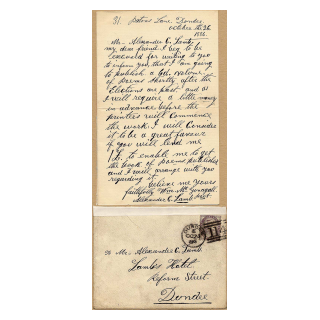 31. Patons Lane, Dundee
October the 26
Mr. Alexander C. Lamb,
my dear friend, I beg to be
for writing to you
to inform you, that I am going
to publish a 6d. volume
of poems shortly after the
Elections are past. and as
I will require a little money
in advance before the
printers will commence
the work. I will Consider
it to be a great favour
if you will lend me
to enable me to get
the book of poems published
and I will arrange with you
regarding it.
believe me yours
faithfully Wm Mc Gonagall
Alexander C. Lamb Esq.
To Mr. Alexander C. Lamb.
Lamb's Hotel.
Reform Street.
Dundee